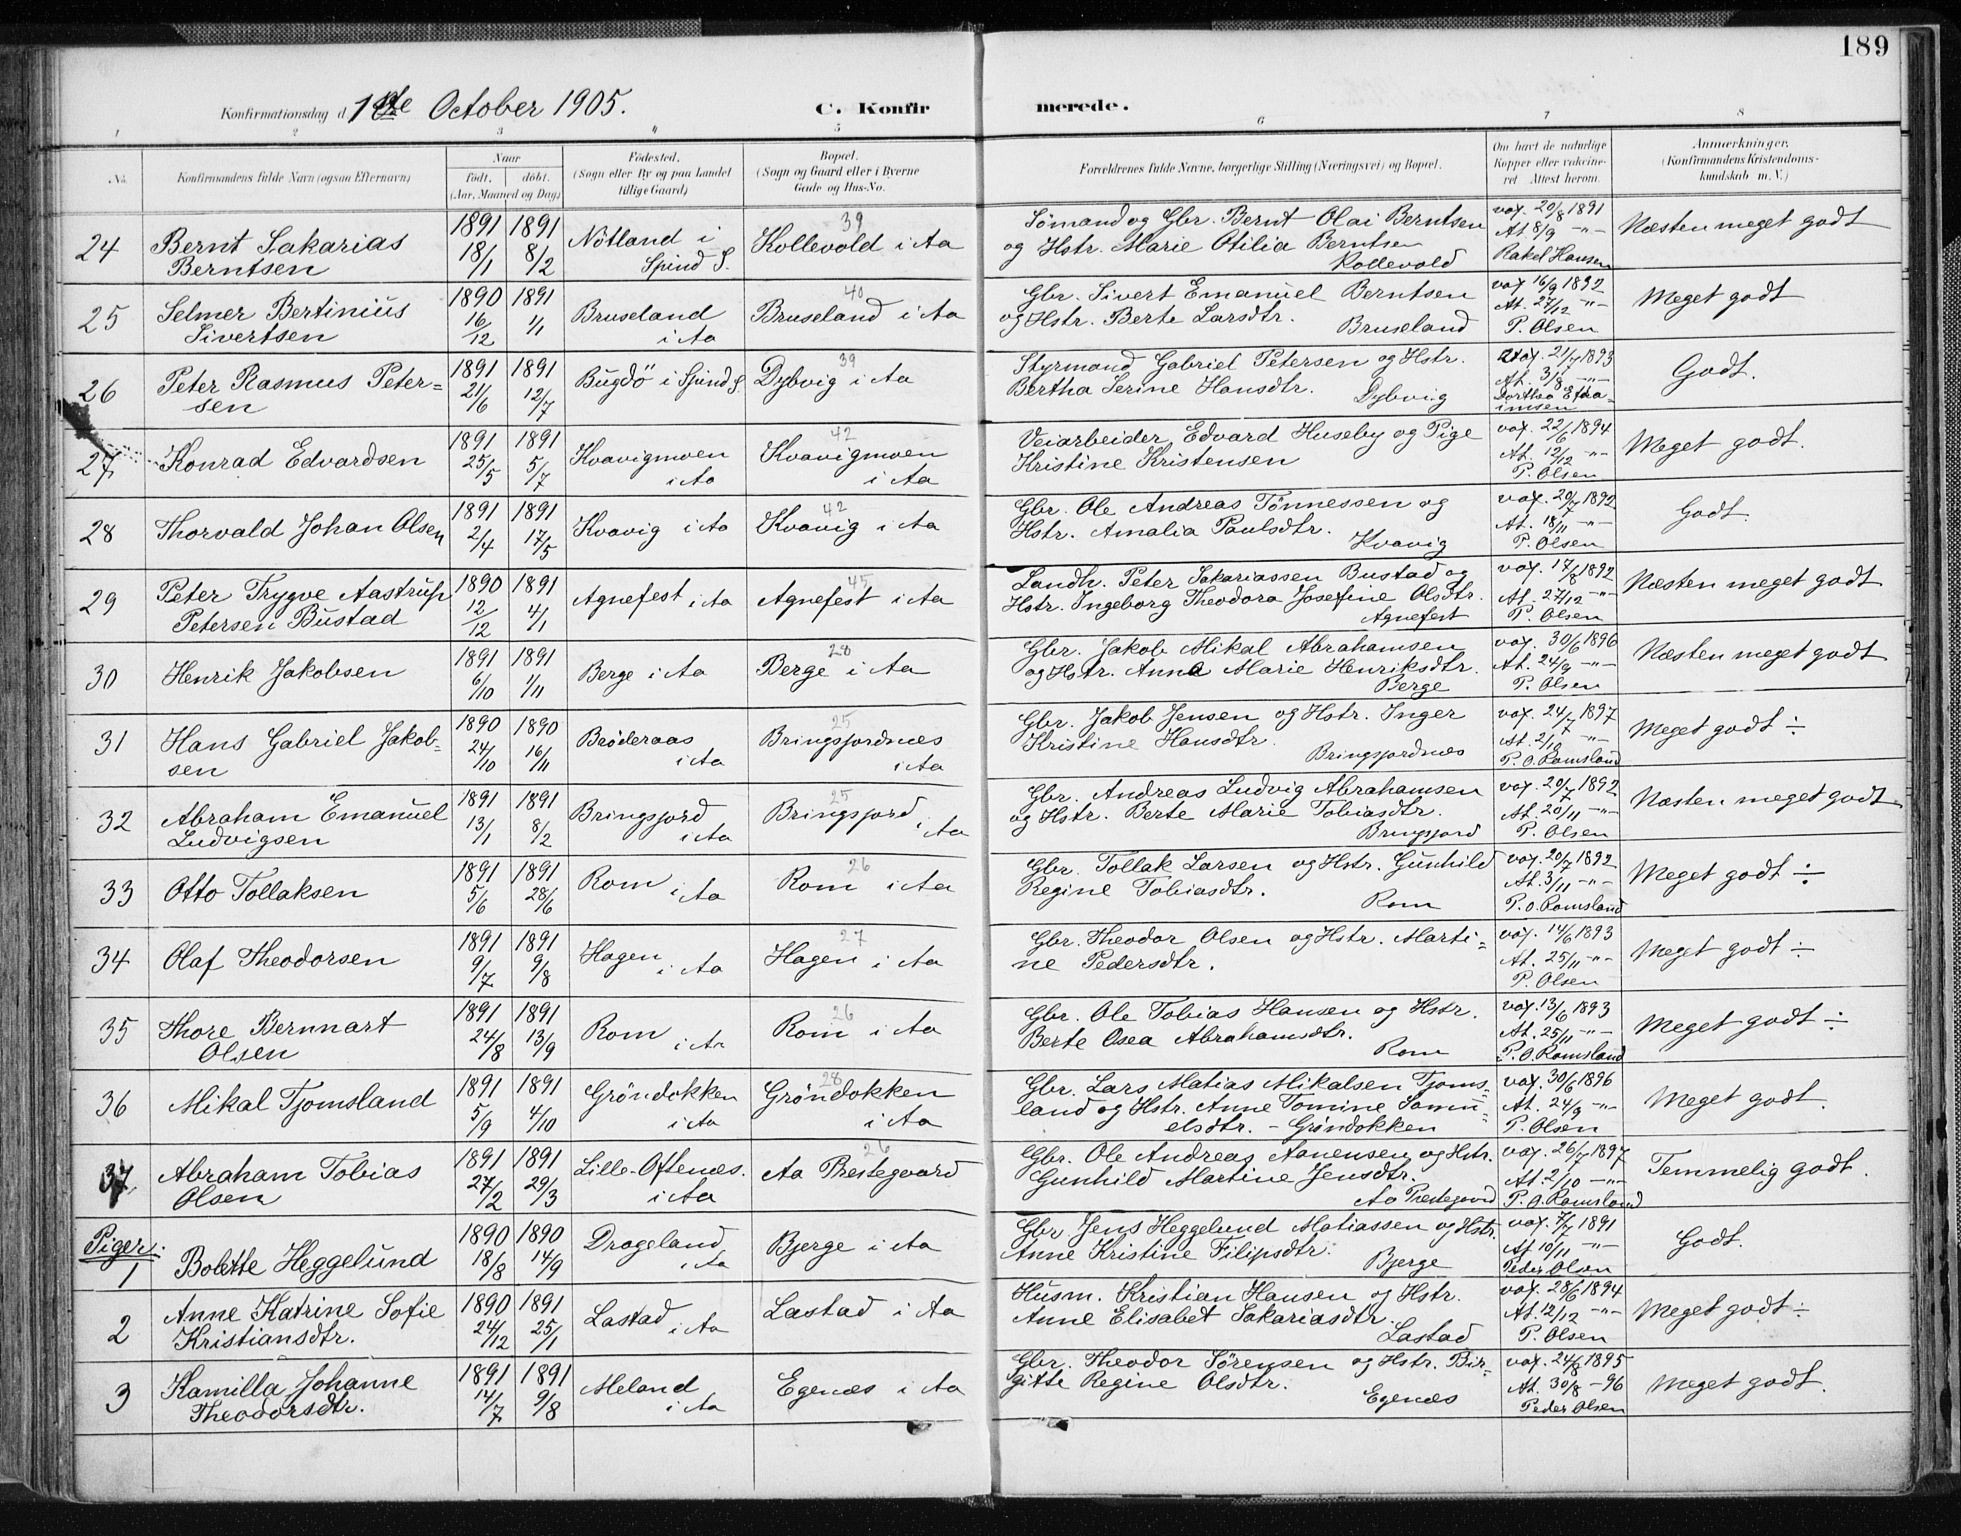 189
Konfirmationsdag d. 1ste October 1905. C. Konfirmerede.
1 2 3 4 5 6 7 8
No. Konfirmandens fulde Navn (ogsaa Efternavn) Naar Født. døbt. (Aar, Maaned og Dag) Fødested. (Sogn eller By og paa Landet tillige Gaard) Bopæl. (Sogn og Gaard eller i Byerne Gade og Hus-No. Forældrenes fulde Navne, borgerlige Stilling (Næringsvei) og Bopæl. Om havt de naturlige Kopper eller vakcineret Attest herom. Anmærkninger. (Konfirmandens Kristendomskundskab m. V.)
24 Bernt Sakarias Berntsen 1891 18/1 1891 8/2 Nötland i Spind S. 39 Kollevold i Aa Sömand og Gbr. Bernt Olai Berntsen og Hstr. Marie Otilia Berntsen Kollevold vax. 20/8 1891 At 8/9 -"- Rakel Hansen Næsten meget godt
25 Selmer Bertinius Sivertsen 1890 16/12 1891 1/1 Bruseland i Aa 40 Bruseland i Aa Gbr. Sivert Emanuel Berntsen og Hstr. Berte Larsdtr. Bruseland vax 16/9 1892 At. 27/12 -"- P. Olsen Meget godt
26 Peter Rasmus Petersen 1891 21/6 1891 12/7 Bugdö i Spind S. 39 Dybvig i Aa Styrmand Gabriel Petersen og Hstr. Bertha Serine Hansdtr. Dybvig vax. 21/7 1893 At. 3/8 -"- Dorthea Efraimsen Godt.
27 Konrad Edvardsen 1891 25/5 1891 5/7 Kvavigmoen i Aa 42 Kvavigmoen i Aa Veiarbeider Edvard Huseby og Pige Kristine Kristensen vax. 22/6 1894 At. 12/12 -"- P. Olsen Meget godt.
28 Thorvald Johan Olsen 1891 2/4 1891 17/5 Kvavig i Aa 42 Kvavig i Aa Gbr. Ole Andreas Tönnessen og Hstr. Amalia Paulsdtr. Kvavig vax. 20/7 1892 At. 18/11 -"- P. Olsen Godt.
29 Peter Trygve Aastrup Petersen Bustad 1890 12/12 1891 4/1 Agnefest i Aa 45 Agnefest i Aa Landh. Peter Sakariassen Bustad og Hstr. Ingeborg Theodora Josefine Olsdtr. Agnefest vax. 17/8 1892 At. 27/12 -"- P. Olsen Næsten meget godt
30 Henrik Jakobsen 1891 6/10 1891 1/11 Berge i Aa 28 Berge i Aa Gbr. Jakob Mikal Abrahamsen og Hstr. Anna Marie Henriksdtr. Berge vax. 30/6 1896 At. 24/9 -"- P. Olsen Næsten meget godt
31 Hans Gabriel Jakobsen 1890 24/10 1890 16/11 Bröderaas i Aa 25 Bringsjordnæs i Aa Gbr. Jakob Jensen og Hstr. Inger Kristine Hansdtr. Bringsjordnæs vax. 24/7 1897 At. 2/10 -"- P. O. Romsland Meget godt ÷
32 Abraham Emanuel Ludvigsen 1891 13/1 1891 8/2 Bringsjord i Aa 25 Bringsjord i Aa Gbr. Andreas Ludvig Abrahamsen og Hstr. Berte Marie Tobiasdtr. Bringsjord vax. 20/7 1892 At. 20/11 -"- P. Olsen Næsten meget godt
33 Otto Tollaksen 1891 5/6 1891 28/6 Rom i Aa 26 Rom i Aa Gbr. Tollak Larsen og Hstr. Gunhild Regine Tobiasdtr. Rom vax. 20/7 1892 At. 3/11 -"- P. O. Romsland Meget godt ÷
34 Olaf Theodorsen 1891 9/7 1891 9/8 Hagen i Aa 27 Hagen i Aa Gbr. Theodor Olsen og Hstr. Martine Pedersdtr. vax. 14/6 1893 At. 25/11 -"- P. Olsen Meget godt ÷
35 Thore Bernnart Olsen 1891 24/8 1891 13/9 Rom i Aa 26 Rom i Aa Gbr. Ole Tobias Hansen og Hstr. Berte Osea Abrahamsdtr. Rom vax. 13/6 1893 At. 25/11 -"- P. O. Romsland Meget godt ÷
36 Mikal Tjomsland 1891 5/9 1891 4/10 Gröndokken i Aa 28 Gröndokken i Aa Gbr. Lars Matias Mikalsen Tjomsland og Hstr. Anne Tomine Samuelsdtr. - Gröndokken vax. 30/6 1896 At. 24/9 -"- P. Olsen Meget godt.
37 Abraham Tobias Olsen 1891 27/2 1891 29/3 Lille-Oftenæs. i Aa 26 Aa Prestegaard Gbr. Ole Andreas Aanensen og Hstr. Gunhild Martine Jensdtr. Aa Prestegaard vax. 26/7 1897 At. 2/10 -"- P. O. Romsland Temmelig godt.
Piger.
1 Bolette Heggelund 1890 18/8 1890 14/9 Drageland i Aa Bjerge i Aa Gbr Jens Heggelund Matiassen og Hstr. Anne Kristine Filipsdtr. Bjerge vax. 7/7 1891 At 10/11 -"- Peder Olsen Godt.
2 Anne Katrine Sofie Kristiansdtr. 1890 24/12 1891 25/1 Lastad i Aa Lastad i Aa Husm. Kristian Hansen og Hstr. Anne Elisabet Sakariasdtr. Lastad vax. 28/6 1894 At. 12/12 -"- P. Olsen Meget godt ÷
3 Kamilla Johanne Theodorsdtr. 1891 14/7 1891 9/8 Meland i Aa Egenæs i Aa Gbr. Theodor Sörensen og Hstr. Birgitte Regine Olsdtr. Egenæs vax. 24/8 1895 At. 30/8 - 96 Peder Olsen Meget godt.